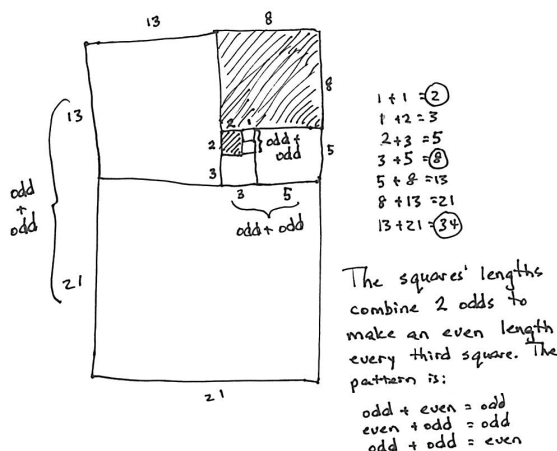 13
8
8
13
odd
+
odd
21
2
1
2
3
odd +
odd
5
3
5
odd + odd
21
1 + 1 = 2
1 + 2 = 3
2 + 3 = 5
3 + 5 = 8
5 + 8 = 13
8 + 13 = 21
13 + 21 = 34
The squares' lengths
combine 2 odds to
make an even length
every third square. The
pattern is:
odd + even = odd
even + odd = odd
odd + odd = even